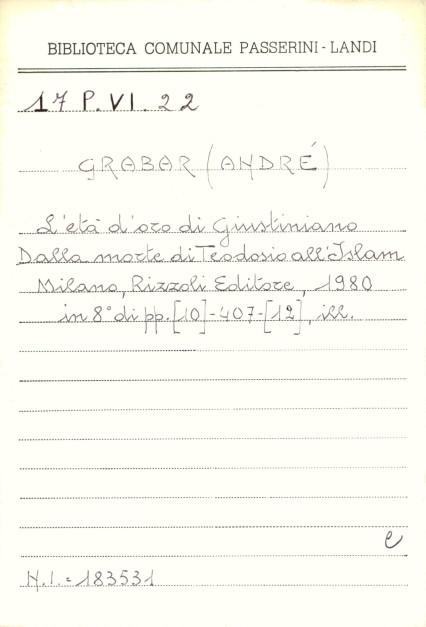 BIBLIOTECA COMUNALE PASSERINI-LANDI
17 P. VI. 22
GRABAR (ANDRÉ)
L'età d'oro di Giustiniano
Dalla morte di Teodosio all'Islam
Milano, Rizzoli Editore, 1980
in 8° di pp. [10]-407-[12], ill.
e
N.I. = 183531